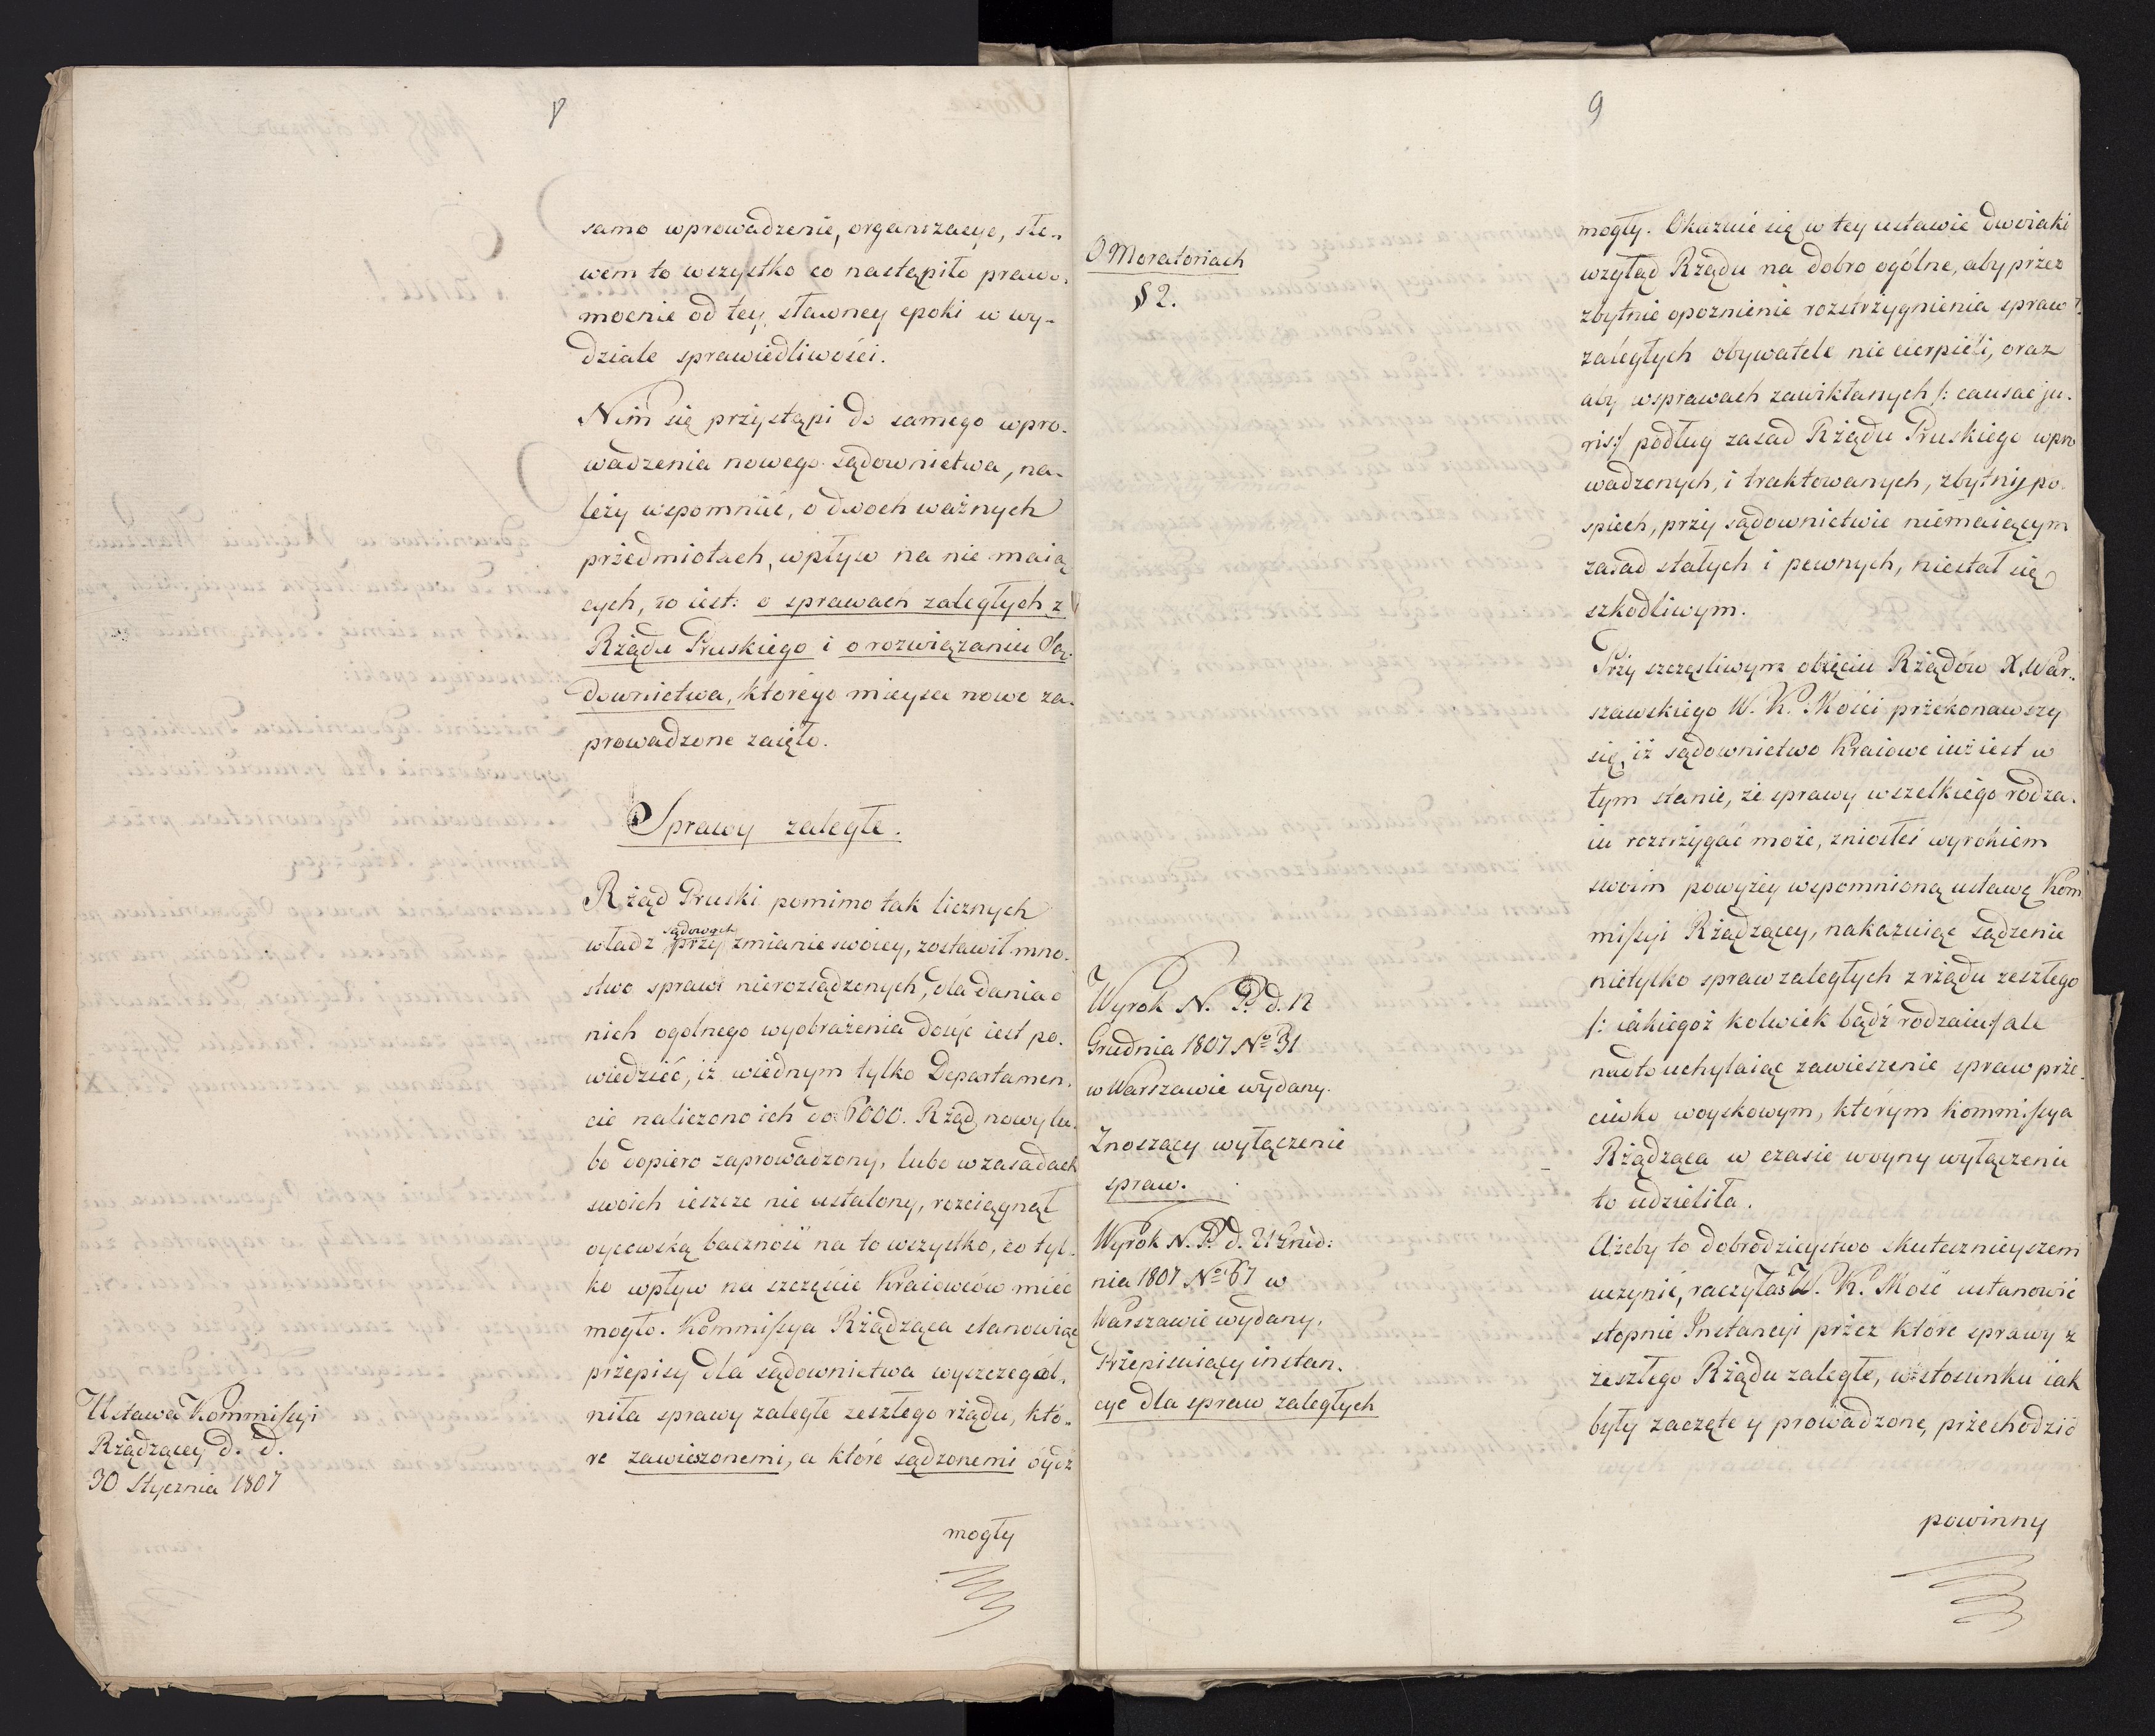 8
samo wprowadzenie, organizacye, sło-
wem to wszystko co nastąpiło prawo-
mocnie od tey sławney epoki w wy-
dziale sprawiedliwości.
Nim się przystąpi do samego wpro-
wadzenia nowego sądownictwa, na-
leży wspomnić, o dwoch ważnych
przedmiotach, wpływ na nie maią
cych, to iest: o sprawach zaległych z
Rządu Pruskiego i o rozwiązaniu Są-
downictwa, którego mieysce nowo za-
prowadzone zaięło.
Sprawy zaległe.
Rząd Pruski pomimo tak licznych
sądowych
władz przy zmianie swoiey, zostawił mno-
stwo spraw nierozsądzonych, dla dania o
nich ogolnego wyobrażenia dosyć iest po-
wiedzieć, iż w iednym tylko Departamen-
cie naliczono ich do 6000. Rząd nowy lu-
bo dopiero zaprowadzony, lubo w zasadach
swoich ieszcze nie ustalony, rozciągnął
oycowską baczność na to wszystko, co tyl-
ko wpływ na szczęście Kraiowców mieć
mogło. Kommissya Rządząca stanowiąc
przepisy dla sądownictwa wyszczegól-
niła sprawy zaległe zeszłego rządu, któ-
re zawieszonemi, a które sądzonemi bydź
mogły
Ustawa Kommissyi
Rządzącey d. d.
30 Stycznia 1807
9
O Moratoriach
§ 2.
Wyrok N. P. d. 12
Grudnia 1807 No 31
w Warszawie wydany.
Znoszący wyłączenie
spraw.
Wyrok N. P. d. 21 Grud:
nia 1807 No 67 w
Warszawie wydany,
Przepisuiący instan-
cye dla spraw zaległych
mogły. Okazuie się w tey ustawie dwoiaki
wzgląd Rządu na dobro ogólne, aby przez
zbytnie opoznienie rozstrzygnienia spraw
zaległych obywatele nie cierpieli, oraz
aby w sprawach zawikłanych /: causae ju-
ris:/ podług zasad Rządu Pruskiego wpro
wadzonych, i traktowanych, zbytniy po-
spiech, przy sądownictwie niemaiącym
zasad stałych i pewnych, niestał się
szkodliwym.
Przy szczęśliwym obięciu Rządów X. War-
szawskiego W. K. Mości przekonawszy
się, iż sądownictwo Kraiowe iuż iest w
tym stanie, że sprawy wszelkiego rodza-
iu rozstrzygać może, zniosłeś wyrokiem
swoim powyżey wspomnioną ustawę Kom
missyi Rządzącey, nakazuiąc sądzenie
nietylko spraw zaległych z rządu zeszłego
/: iakiegoż kolwiek bądź rodzaiu:/ ale
nadto uchylaiąc zawieszenie spraw prze-
ciwko woyskowym, którym Kommissya
Rządząca w czasie woyny wyłączenia
to udzieliła.
Ażeby to dobrodzieystwo skutecznieyszem
uczynić, raczyłaś W. K. Mość ustanowić
stopnie Instancyi przez które sprawy z
zeszłego Rządu zaległe, w stosunku iak
były zaczęte y prowadzone, przechodzić
powinny